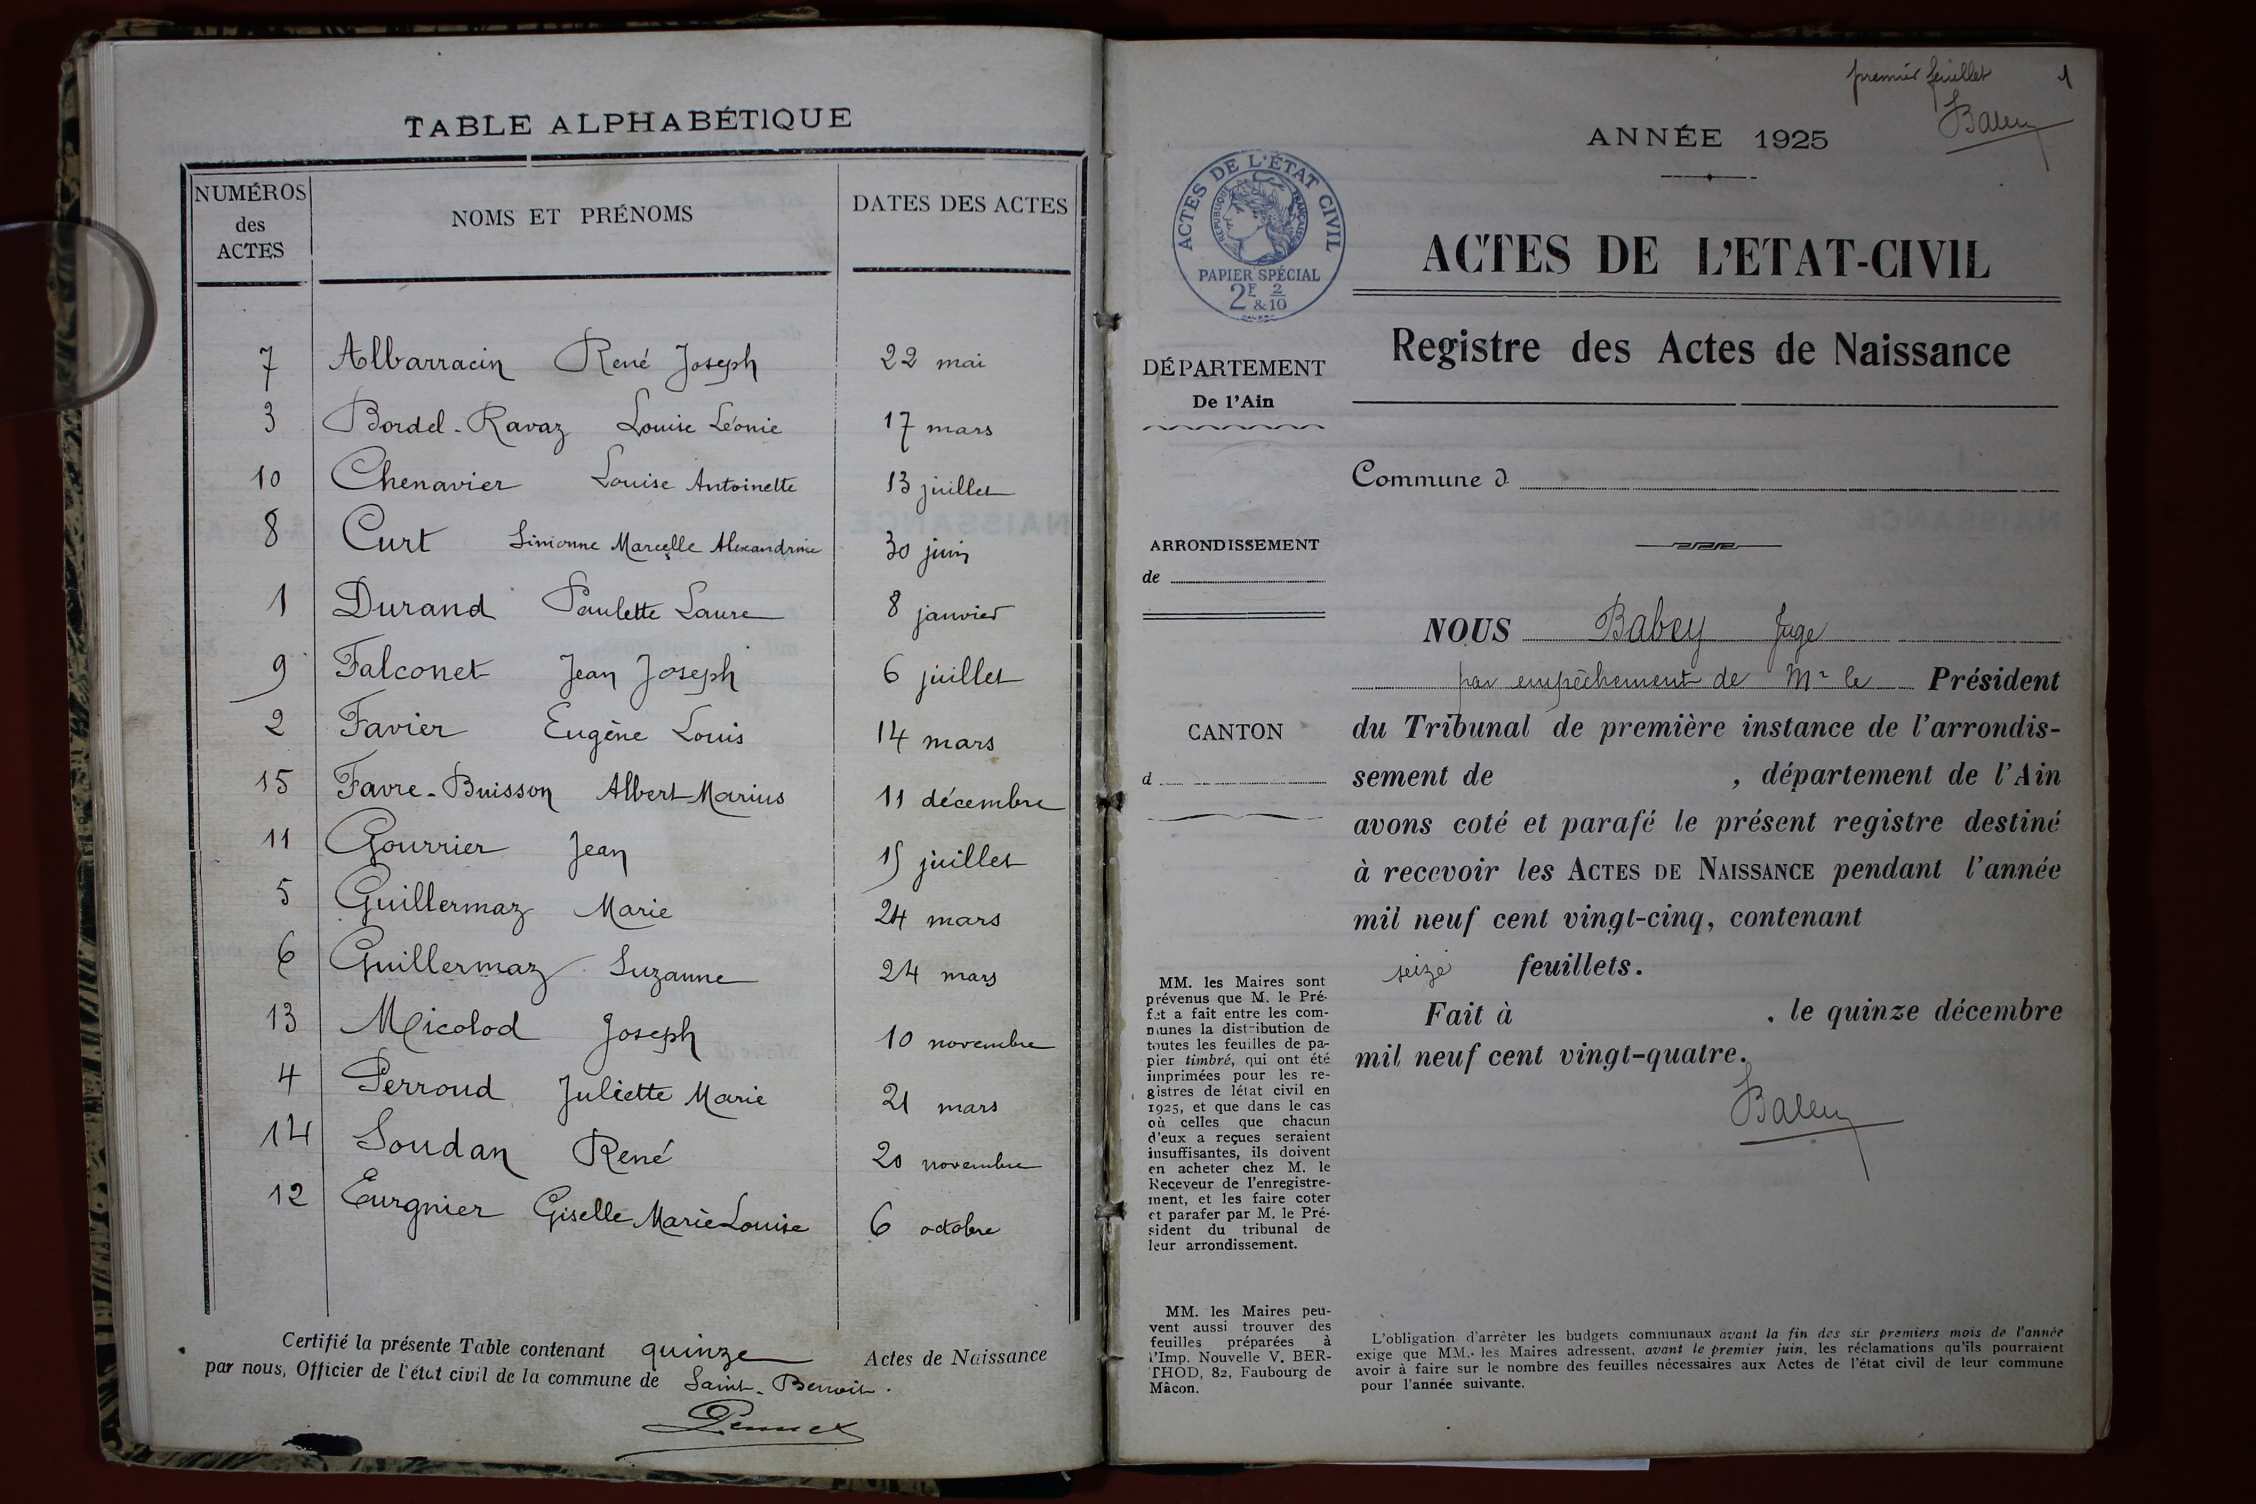 TABLE ALPHABÉTIQUE
NUMÉROS des ACTES NOMS ET PRÉNOMS DATES DES ACTES
7 Albarracin René Joseph 22 mai
3 Bordel-Ravaz Louise Léonie 17 mars
10 Chenavier Louise Antoinette 13 juillet
8 Curt Simonne Marcelle Alexandrine 30 juin
1 Durand Paulette Laure 8 janvier
9 Falconet Jean Joseph 6 juillet
2 Favier Eugène Louis 14 mars
15 Favre-Buisson Albert Marius 11 décembre
11 Gourrier Jean 15 juillet
5 Guillermaz Marie 24 mars
6 Guillermaz Suzanne 24 mars
13 Micolod Joseph 10 novembre
4 Perroud Juliette Marie 21 mars
14 Soudan René 20 novembre
12 Eurgnier Giselle Marie Louise 6 octobre
Certifié la présente Table contenant quinze Actes de Naissance
par nous, Officier de l'état civil de la commune de Saint-Benoit.
premier feuillet 1
ANNÉE 1925
ACTES DE L'ÉTAT CIVIL
RÉPUBLIQUE FRANÇAISE
PAPIER SPÉCIAL
2F & 2/10
ACTES DE L'ETAT-CIVIL
Registre des Actes de Naissance
DÉPARTEMENT
De l'Ain
Commune d
ARRONDISSEMENT
de
CANTON
d
NOUS Babey Juge
par empêchement de Mr le Président
du Tribunal de première instance de l'arrondis-
sement de , département de l'Ain
avons coté et parafé le présent registre destiné
à recevoir les ACTES DE NAISSANCE pendant l'année
mil neuf cent vingt-cinq, contenant
seize feuillets.
Fait à , le quinze décembre
mil neuf cent vingt-quatre.
Babey
MM. les Maires sont
prévenus que M. le Pré-
fet a fait entre les com-
munes la distribution de
toutes les feuilles de pa-
pier timbré, qui ont été
imprimées pour les re-
gistres de létat civil en
1925, et que dans le cas
où celles que chacun
d'eux a reçues seraient
insuffisantes, ils doivent
en acheter chez M. le
Receveur de l'enregistre-
ment, et les faire coter
et parafer par M. le Pré-
sident du tribunal de
leur arrondissement.
MM. les Maires peu-
vent aussi trouver des
feuilles préparées à
l'Imp. Nouvelle V. BER-
THOD, 82, Faubourg de
Mâcon.
L'obligation d'arrêter les budgets communaux avant la fin des six premiers mois de l'année
exige que MM. les Maires adressent, avant le premier juin, les réclamations qu'ils pourraient
avoir à faire sur le nombre des feuilles nécessaires aux Actes de l'état civil de leur commune
pour l'année suivante.